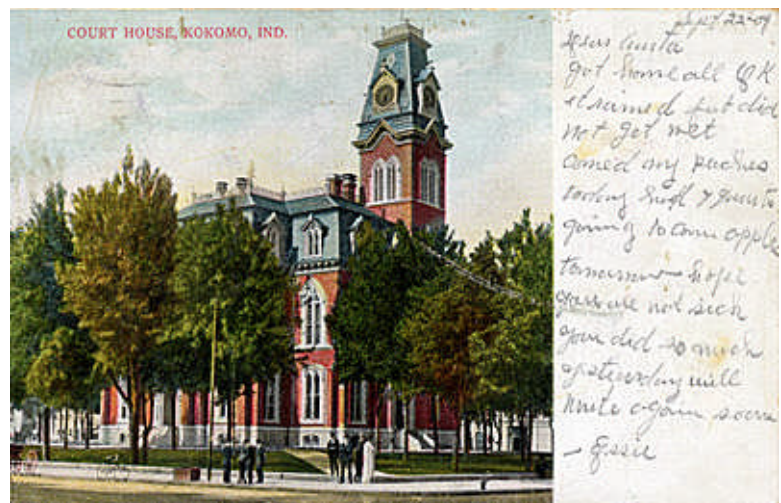 COURT HOUSE, KOKOMO, IND.
Sept 22-09
Dear Aunta
got home all O K
it rained but did
not get wet
caned my peaches
today had 7 quarts
going to can apple
tomorrow hope
you are not sick
you did so much
yesterday will
write again soon
- Essie